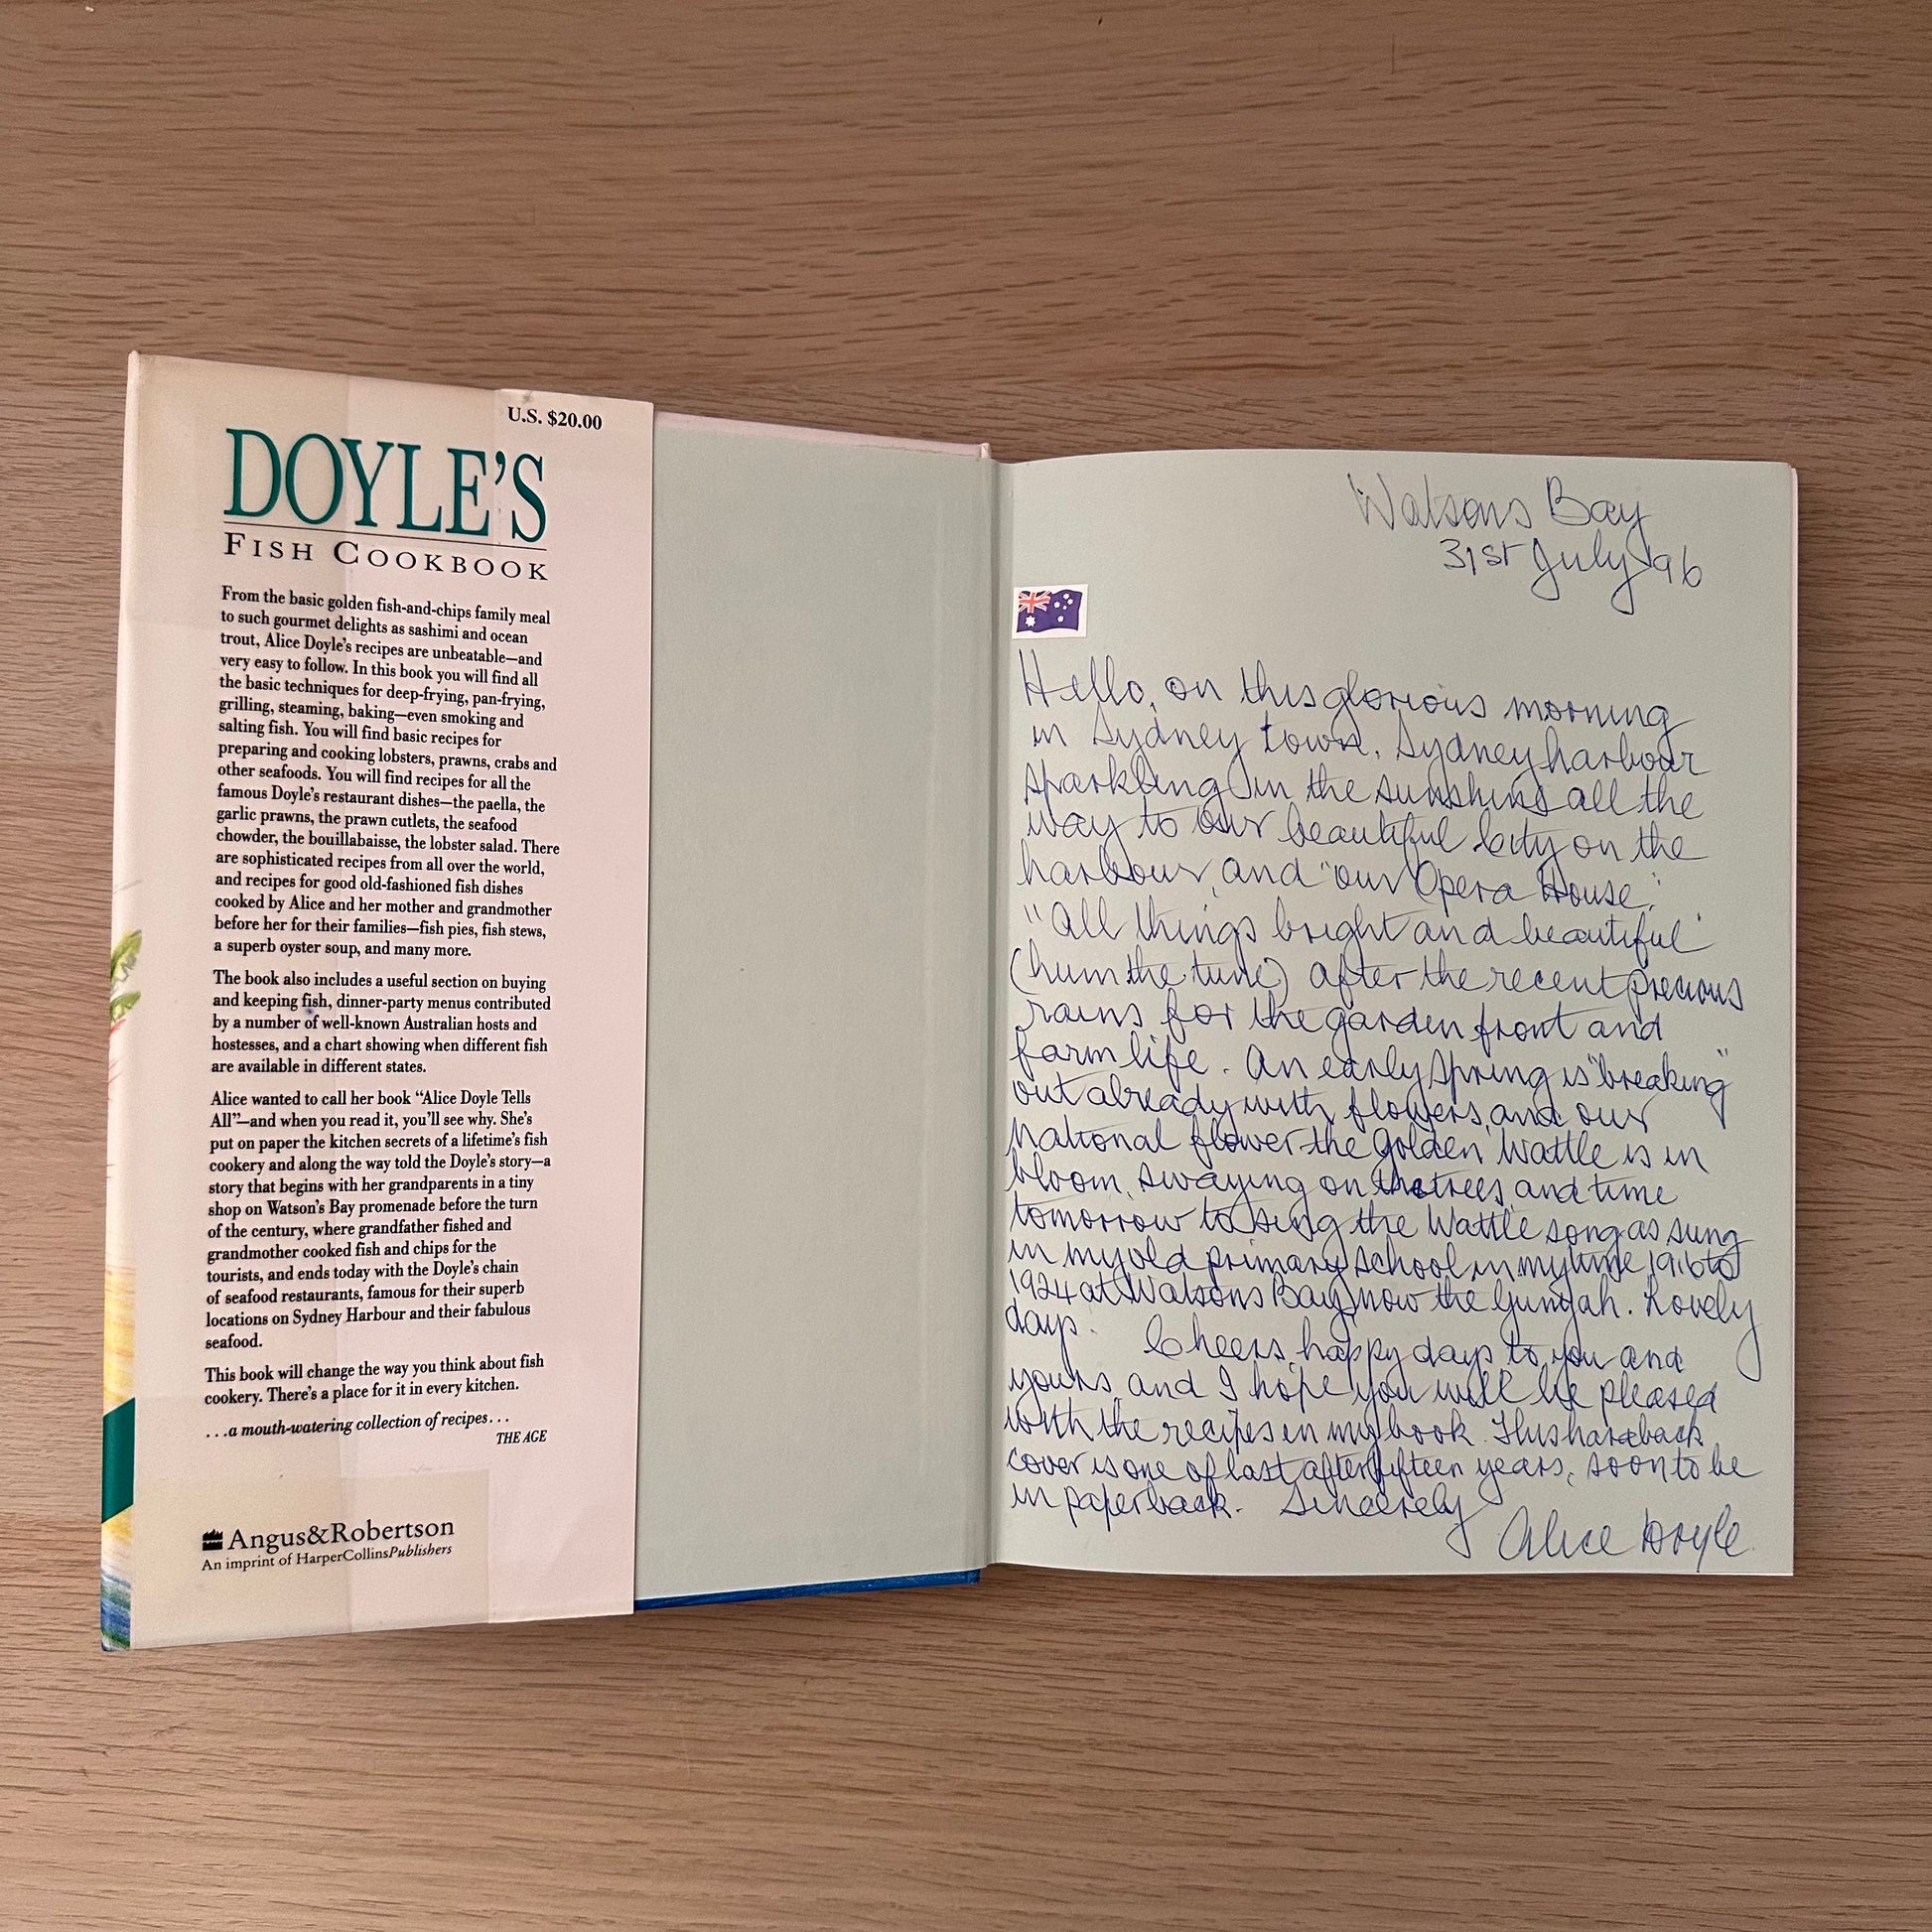 U.S. $20.00
DOYLE'S
FISH COOKBOOK
From the basic golden fish-and-chips family meal
to such gourmet delights as sashimi and ocean
trout, Alice Doyle's recipes are unbeatable—and
very easy to follow. In this book you will find all
the basic techniques for deep-frying, pan-frying,
grilling, steaming, baking—even smoking and
salting fish. You will find basic recipes for
preparing and cooking lobsters, prawns, crabs and
other seafoods. You will find recipes for all the
famous Doyle's restaurant dishes—the paella, the
garlic prawns, the prawn cutlets, the seafood
chowder, the bouillabaisse, the lobster salad. There
are sophisticated recipes from all over the world,
and recipes for good old-fashioned fish dishes
cooked by Alice and her mother and grandmother
before her for their families—fish pies, fish stews,
a superb oyster soup, and many more.
The book also includes a useful section on buying
and keeping fish, dinner-party menus contributed
by a number of well-known Australian hosts and
hostesses, and a chart showing when different fish
are available in different states.
Alice wanted to call her book “Alice Doyle Tells
All”—and when you read it, you'll see why. She's
put on paper the kitchen secrets of a lifetime's fish
cookery and along the way told the Doyle's story—a
story that begins with her grandparents in a tiny
shop on Watson's Bay promenade before the turn
of the century, where grandfather fished and
grandmother cooked fish and chips for the
tourists, and ends today with the Doyle's chain
of seafood restaurants, famous for their superb
locations on Sydney Harbour and their fabulous
seafood.
This book will change the way you think about fish
cookery. There's a place for it in every kitchen.
...a mouth-watering collection of recipes...
THE AGE
Angus&Robertson
An imprint of HarperCollinsPublishers
Watsons Bay
31st July '96
Hello, on this glorious morning
in Sydney town. Sydney harbour
sparkling in the sunshine all the
way to our beautiful City on the
harbour, and "our Opera House."
"All things bright and beautiful"
(hum the tune) after the recent precious
rains for the garden front and
farm life. An early Spring is "breaking"
out already with flowers, and our
National flower the Golden Wattle is in
bloom, swaying on the trees, and time
tomorrow to sing the Wattle song as sung
in my old primary school in my time 1916 to
1924 at Watsons Bay, now the Gunyah. Lovely
days. Cheers, happy days to you and
yours, and I hope you will be pleased
with the recipes in my book. This hardback
cover is one of last after fifteen years, soon to be
in paperback. Sincerely
Alice Doyle